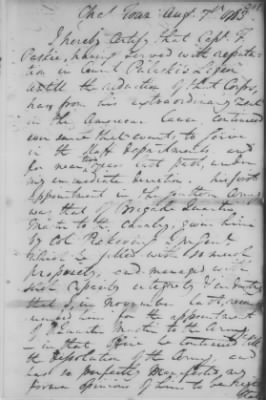 Chs Town Augt 7th 1783
I hereby Certify, that Capt. F.
having served with reputa-
tion in Count Pulaski's Legion
untill the reduction of that Corps,
has from his extraordinary Zeal
in the American Cause continued
ever since that event, to serve
in the Staff Departments and
for near two years last past, under
my immediate direction. his first
appointment in the Southern Army
was that of Brigade Quarter
Master to the Cavalry, given him
by Col. Pickering Qr. Mr. Genl.
which he filled with so much
propriety, and managed with
such Capacity integrity &
that I, in November last, recom-
mended him for the appointment
of Dy. Quarter Master to the Army
in that Office he continued till
the Dissolution of the Army, and
has so perfectly manifested, my
former Opinion of him to be